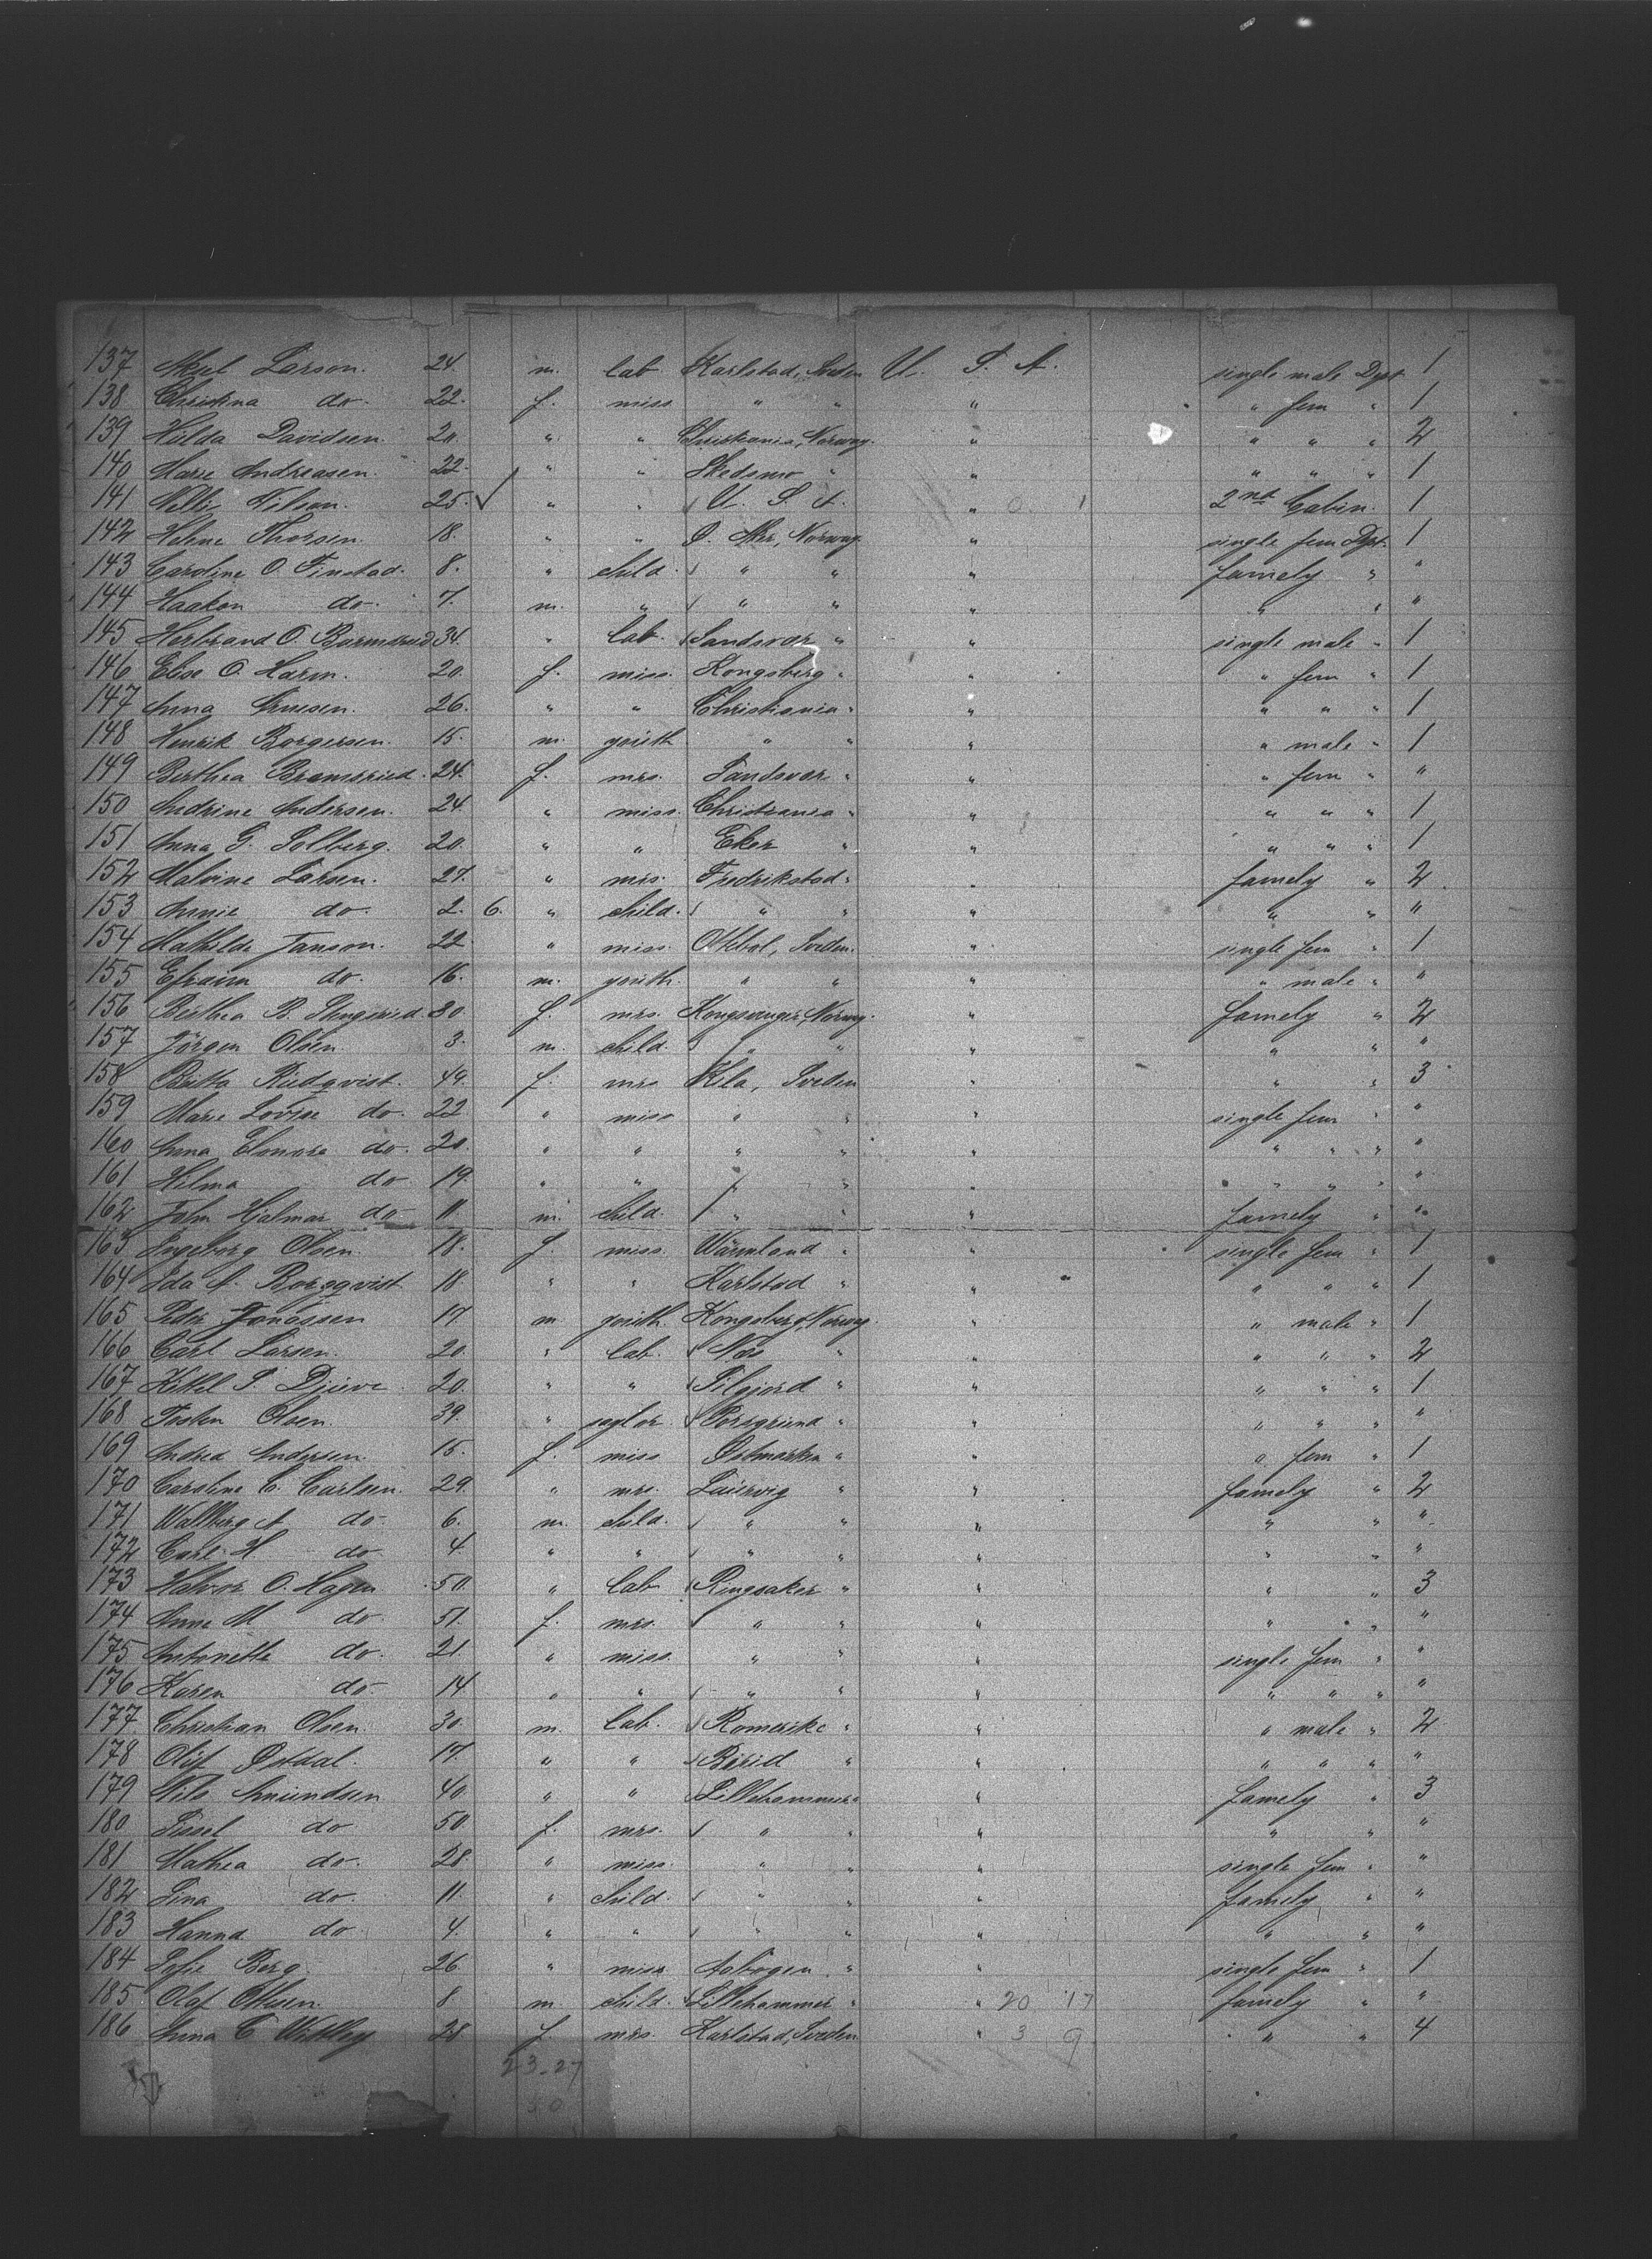 137 Axel Larson. 24. m. lab. Karlstad, Sveden U. S. A. single male Dpt. 1
138 Christina do. 22. f. miss " " " " fem " 1
139 Hilda Davidsen. 20. " " Christiania, Norway. " " " " 2
140 Marie Andreasen. 22. " " Skedsmo " " " " " 1
141 Nelli Nilson. 25. ✓ " " U. S. A. " 0 1 2nt Cabin. 1
142 Helene Thorsen. 18. " " Ø. Aker, Norway. " single fem Dpt. 1
143 Caroline O. Finstad. 8. " child. " " " famely " "
144 Haakon do. 7. m. " " " " " " "
145 Herbrand O. 34. " lab. Sandsvær " " single male " 1
146 Elise O. Haren. 20. f. miss. Kongsberg " " " fem " 1
147 Anna 26. " " Christiania " " " " " 1
148 Henrik Borgersen. 15. m. youth " " " " male " 1
149 Berthea 24. f. mrs. Sandsvær " " " fem " "
150 Andrine Andersen. 24. " miss. Christiania " " " " " 1
151 Anna G. Solberg. 20. " " Eker " " " " " 1
152 Malvine Larsen. 27. " mrs. Fredrikstad " " famely " 2
153 Annie do. 2. 6. " child. " " " " " "
154 Mathilde Janson. 22 " miss. Sveden. " single fem " 1
155 Efraim do. 16. m. youth. " " " " male " "
156 Berthea B. 30. f. mrs. Kongsvinger, Norway. " famely " 2
157 Jörgen Olsen. 3. m. child. " " " " " "
158 Britta Rudqvist. 49. f. mrs Kila, Sveden " " " 3
159 Marie Lovise do. 22 " miss " " " single fem " "
160 Anna Elonora do. 20. " " " " " " " " "
161 Hilma do 19. " " " " " " " " "
162 John Hjalmar do 11. m. child. " " " famely " "
163 Ingeborg Olsen. 18. f. miss. Wärmland " " single fem " 1
164 Ida A. Borgqvist 18 " " Karlstad " " " " " 1
165 Peder Jonassen 17. m youth. Kongsberg, Norway " " male " 1
166 Carl Larsen. 20. " lab. Næs " " " " " 2
167 Kittel S. Djuve 20. " " Silgjord " " " " " 1
168 Tosten Olsen. 39. " saylor Porsgrund " " " " " "
169 Andrea Andersen. 15. f. miss Østmarka " " " fem " 1
170 Caroline C. Carlsen. 29. " mrs. Laurvig " " famely " 2
171 Wallberg A do. 6. m. child. " " " " " "
172 Carl H. do 4. " " " " " " " "
173 Halvor O. Hagen 50. " lab Ringsaker " " " " 3
174 Anne M do 51. f. mrs. " " " " " "
175 Antonette do. 21. " miss. " " " single fem " "
176 Karen do. 14 " " " " " " " " "
177 Christian Olsen. 30. m. lab. Romerike " " " male " 2
178 Oluf Østdal. 17. " " Birid " " " " " "
179 Nils Amundsen 40. " " Lillehammer " " famely " 3
180 Sissel do 50. f. mrs. " " " " " "
181 Mathea do. 28. " miss. " " " single fem " "
182 Lina do. 11. " child. " " " famely " "
183 Hanna do 4. " " " " " " " "
184 Sofie Berg. 26. " miss Aabogen " " single fem " 1
185 Olaf Ottesen. 8. m. child. Lillehammer " " 20 17 famely " "
186 Anna C. Wittley 28 f. mrs. Karlstad, Sveden " 3 9 " " 4
23-27
50